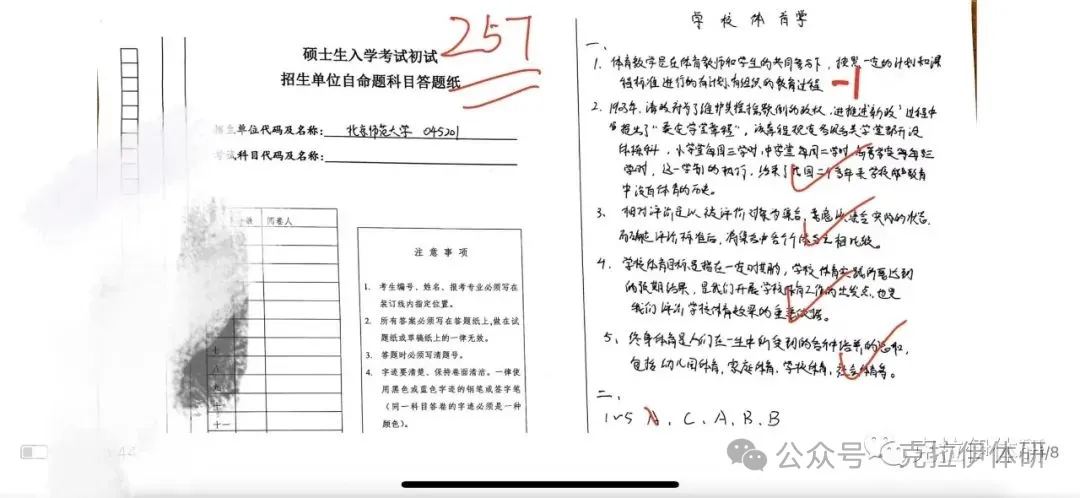 硕士生入学考试初试
招生单位自命题科目答题纸
257
招生单位代码及名称：北京师范大学 045201
考试科目代码及名称：
阅卷人
十
八
九
十
十一
注意事项
1. 考生编号、姓名、报考专业必须写在
装订线内指定位置。
2. 所有答案必须写在答题纸上,做在试
题纸或草稿纸上的一律无效。
3. 答题时必须写清题号。
4. 字迹要清楚、保持卷面清洁。一律使
用黑色或蓝色字迹的钢笔或签字笔
（同一科目答卷的字迹必须是一种
颜色）。
学校体育学
一、
1. 体育教学是在体育教师和学生的共同参与下，按照一定的计划和课
程标准进行的有计划有组织的教育过程 -1
2. 1903年，清政府为了维护其摇摇欲倒的政权，进推过新政"过程中
提出了"奏定学堂章程"，该章程规定各级各类学堂都开设
体操科，小学堂每周三学时，中学堂每周二学时，高等学堂等每周三
学时，这一学制的执行，结束了我国二千多年来学校教育
中没有体育的历史。
3. 相对评价是以被评价对象为集合，考虑此集合实际的状态
而确定评价标准后，将集合中各个个体与之相比较。
4. 学校体育目标是指在一定时期内，学校体育实践所要达到
的预期结果，是我们开展学校体育工作的出发点，也是
我们评价学校体育效果的重要依据。
5. 终身体育是人们在一生中所受到的各种体育培养的总和，
包括幼儿园体育，家庭体育，学校体育，社会体育等。
二、
1~5 A、C、A、B、B
公众号·克拉伊体研
/8